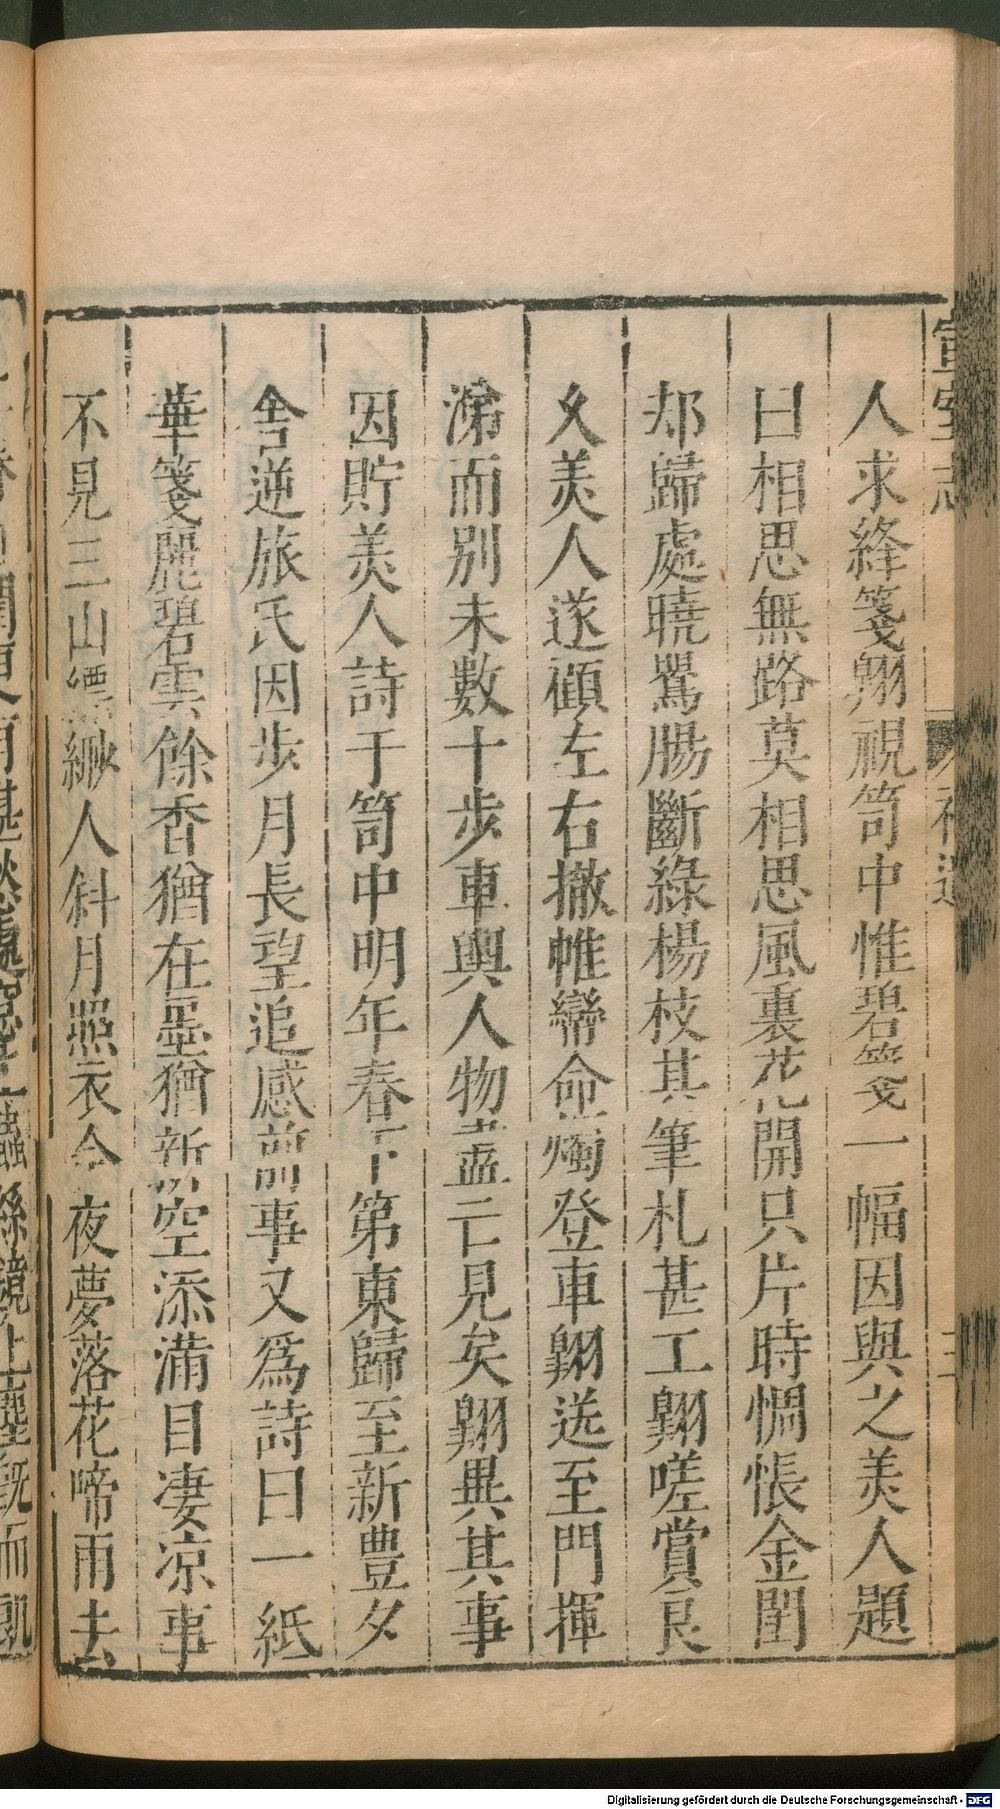 人求絳箋翱視笥中惟碧箋一幅因與之美人題
曰相思無路莫相思風裏花開只片時惆悵金閨
却歸處曉鶯腸斷綠楊枝其筆札甚工翱嗟賞良
久美人遂顧左右撤帷轡命燭登車翱送至門揮
涕而別未數十步車輿人物盡亡見矣翱異其事
因貯美人詩于笥中明年春下第東歸至新豐夕
舍逆旅氏因步月長望追感前事又爲詩曰一紙
華箋麗碧雲餘香猶在墨猶新空添滿目凄凉事
不見三山縹緲人斜月照衣今夜夢落花啼雨去
Digitalisierung gefördert durch die Deutsche Forschungsgemeinschaft - DFG